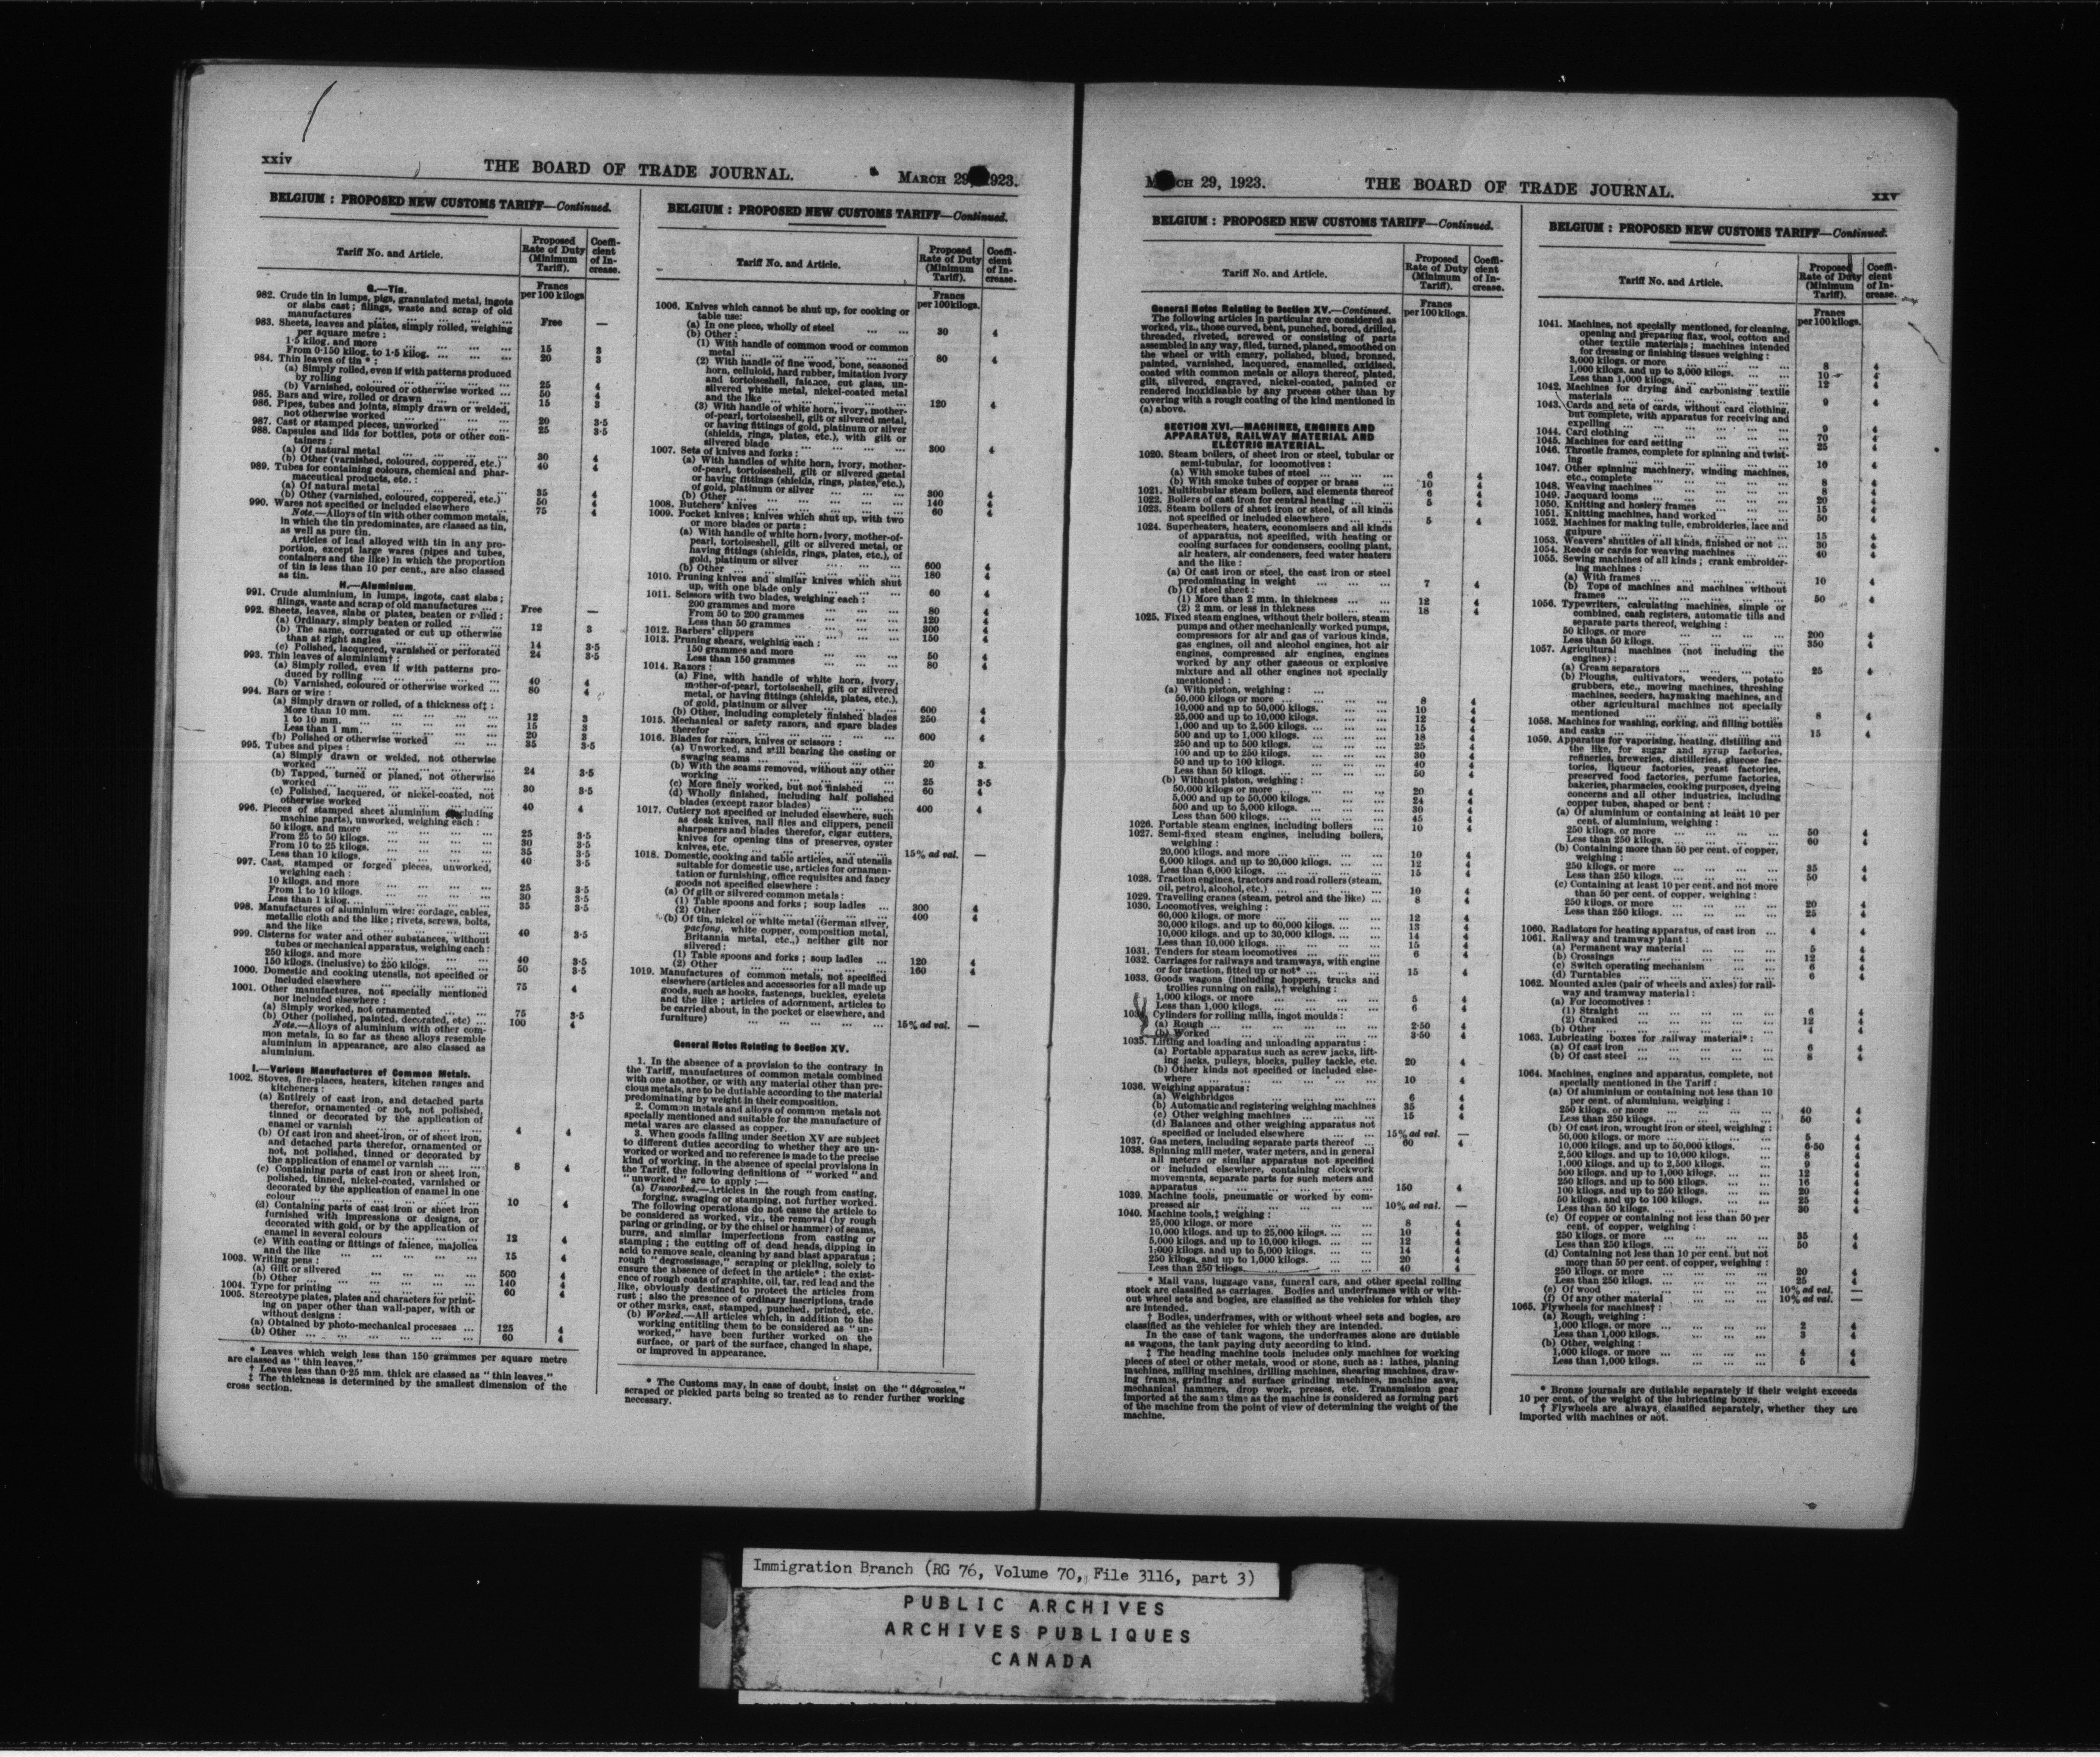 xxiv
THE BOARD OF TRADE JOURNAL.
MARCH 29, 1923.
BELGIUM : PROPOSED NEW CUSTOMS TARIFF—Continued.
Tariff No. and Article.
Proposed Rate of Duty (Minimum Tariff).
Coefficient of Increase.
G.—Tin.
Francs per 100 kilogs
982. Crude tin in lumps, pigs, granulated metal, ingots
or slabs cast; filings, waste and scrap of old
manufactures ... Free —
983. Sheets, leaves and plates, simply rolled, weighing
per square metre :
1·5 kilog. and more ... 15 3
From 0·150 kilog. to 1·5 kilog. ... 20 3
984. Thin leaves of tin * :
(a) Simply rolled, even if with patterns produced
by rolling ... 25 4
(b) Varnished, coloured or otherwise worked ... 50 4
985. Bars and wire, rolled or drawn ... 15 3
986. Pipes, tubes and joints, simply drawn or welded,
not otherwise worked ... 20 3·5
987. Cast or stamped pieces, unworked ... 25 3·5
988. Capsules and lids for bottles, pots or other con-
tainers :
(a) Of natural metal ... 30 4
(b) Other (varnished, coloured, coppered, etc.) 40 4
989. Tubes for containing colours, chemical and phar-
maceutical products, etc. :
(a) Of natural metal ... 35 4
(b) Other (varnished, coloured, coppered, etc.) 50 4
990. Wares not specified or included elsewhere ... 75 4
Note.—Alloys of tin with other common metals,
in which the tin predominates, are classed as tin,
as well as pure tin.
Articles of lead alloyed with tin in any pro-
portion, except large wares (pipes and tubes,
containers and the like) in which the proportion
of tin is less than 10 per cent., are also classed
as tin.
H.—Aluminium.
991. Crude aluminium, in lumps, ingots, cast slabs ;
filings, waste and scrap of old manufactures ... Free —
992. Sheets, leaves, slabs or plates, beaten or rolled :
(a) Ordinary, simply beaten or rolled ... 12 3
(b) The same, corrugated or cut up otherwise
than at right angles ... 14 3·5
(c) Polished, lacquered, varnished or perforated 24 3·5
993. Thin leaves of aluminium† :
(a) Simply rolled, even if with patterns pro-
duced by rolling ... 40 4
(b) Varnished, coloured or otherwise worked ... 80 4
994. Bars or wire :
(a) Simply drawn or rolled, of a thickness of‡ :
More than 10 mm. ... 12 3
1 to 10 mm. ... 15 3
Less than 1 mm. ... 20 3
(b) Polished or otherwise worked ... 35 3·5
995. Tubes and pipes :
(a) Simply drawn or welded, not otherwise
worked ... 24 3·5
(b) Tapped, turned or planed, not otherwise
worked ... 30 3·5
(c) Polished, lacquered, or nickel-coated, not
otherwise worked ... 40 4
996. Pieces of stamped sheet aluminium
machine parts), unworked, weighing each :
50 kilogs. and more ... 25 3·5
From 25 to 50 kilogs. ... 30 3·5
From 10 to 25 kilogs. ... 35 3·5
Less than 10 kilogs. ... 40 3·5
997. Cast, stamped or forged pieces, unworked,
weighing each :
10 kilogs. and more ... 25 3·5
From 1 to 10 kilogs. ... 30 3·5
Less than 1 kilog. ... 35 3·5
998. Manufactures of aluminium wire: cordage, cables,
metallic cloth and the like ; rivets, screws, bolts,
and the like ... 40 3·5
999. Cisterns for water and other substances, without
tubes or mechanical apparatus, weighing each :
250 kilogs. and more ... 40 3·5
150 kilogs. (inclusive) to 250 kilogs. ... 50 3·5
1000. Domestic and cooking utensils, not specified or
included elsewhere ... 75 4
1001. Other manufactures, not specially mentioned
nor included elsewhere :
(a) Simply worked, not ornamented ... 75 3·5
(b) Other (polished, painted, decorated, etc) ... 100 4
Note.—Alloys of aluminium with other com-
mon metals, in so far as these alloys resemble
aluminium in appearance, are also classed as
aluminium.
I.—Various Manufactures of Common Metals.
1002. Stoves, fire-places, heaters, kitchen ranges and
kitcheners :
(a) Entirely of cast iron, and detached parts
therefor, ornamented or not, not polished,
tinned or decorated by the application of
enamel or varnish ... 4 4
(b) Of cast iron and sheet-iron, or of sheet iron,
and detached parts therefor, ornamented or
not, not polished, tinned or decorated by
the application of enamel or varnish ... 8 4
(c) Containing parts of cast iron or sheet iron,
polished, tinned, nickel-coated, varnished or
decorated by the application of enamel in one
colour ... 10 4
(d) Containing parts of cast iron or sheet iron
furnished with impressions or designs, or
decorated with gold, or by the application of
enamel in several colours ... 12 4
(e) With coating or fittings of faience, majolica
and the like ... 15 4
1003. Writing pens :
(a) Gilt or silvered ... 500 4
(b) Other ... 140 4
1004. Type for printing ... 60 4
1005. Stereotype plates, plates and characters for print-
ing on paper other than wall-paper, with or
without designs :
(a) Obtained by photo-mechanical processes ... 125 4
(b) Other ... 60 4
* Leaves which weigh less than 150 grammes per square metre
are classed as "thin leaves."
† Leaves less than 0·25 mm. thick are classed as "thin leaves."
‡ The thickness is determined by the smallest dimension of the
cross section.
BELGIUM : PROPOSED NEW CUSTOMS TARIFF—Continued.
Tariff No. and Article.
Proposed Rate of Duty (Minimum Tariff).
Coefficient of Increase.
Francs per 100 kilogs.
1006. Knives which cannot be shut up, for cooking or
table use:
(a) In one piece, wholly of steel ... 30 4
(b) Other :
(1) With handle of common wood or common
metal ... 80 4
(2) With handle of fine wood, bone, seasoned
horn, celluloid, hard rubber, imitation ivory
and tortoiseshell, faience, cut glass, un-
silvered white metal, nickel-coated metal
and the like ... 120 4
(3) With handle of white horn, ivory, mother-
of-pearl, tortoiseshell, gilt or silvered metal,
or having fittings of gold, platinum or silver
(shields, rings, plates, etc.), with gilt or
silvered blade ... 300 4
1007. Sets of knives and forks :
(a) With handles of white horn, ivory, mother-
of-pearl, tortoiseshell, gilt or silvered metal
or having fittings (shields, rings, plates, etc.),
of gold, platinum or silver ... 300 4
(b) Other ... 140 4
1008. Butchers' knives ... 60 4
1009. Pocket knives; knives which shut up, with two
or more blades or parts :
(a) With handle of white horn, ivory, mother-of-
pearl, tortoiseshell, gilt or silvered metal, or
having fittings (shields, rings, plates, etc.), of
gold, platinum or silver ... 600 4
(b) Other ... 180 4
1010. Pruning knives and similar knives which shut
up, with one blade only ... 60 4
1011. Scissors with two blades, weighing each :
200 grammes and more ... 80 4
From 50 to 200 grammes ... 120 4
Less than 50 grammes ... 300 4
1012. Barbers' clippers ... 150 4
1013. Pruning shears, weighing each :
150 grammes and more ... 50 4
Less than 150 grammes ... 80 4
1014. Razors :
(a) Fine, with handle of white horn, ivory,
mother-of-pearl, tortoiseshell, gilt or silvered
metal, or having fittings (shields, plates, etc.),
of gold, platinum or silver ... 600 4
(b) Other, including completely finished blades 250 4
1015. Mechanical or safety razors, and spare blades
therefor ... 600 4
1016. Blades for razors, knives or scissors :
(a) Unworked, and still bearing the casting or
swaging seams ... 20 3
(b) With the seams removed, without any other
working ... 25 3·5
(c) More finely worked, but not finished ... 60 4
(d) Wholly finished, including half polished
blades (except razor blades) ... 400 4
1017. Cutlery not specified or included elsewhere, such
as desk knives, nail files and clippers, pencil
sharpeners and blades therefor, cigar cutters,
knives for opening tins of preserves, oyster
knives, etc. ... 15% ad val. —
1018. Domestic, cooking and table articles, and utensils
suitable for domestic use, articles for ornamen-
tation or furnishing, office requisites and fancy
goods not specified elsewhere :
(a) Of gilt or silvered common metals :
(1) Table spoons and forks ; soup ladles ... 300 4
(2) Other ... 400 4
(b) Of tin, nickel or white metal (German silver,
pacfong, white copper, composition metal,
Britannia metal, etc.,) neither gilt nor
silvered :
(1) Table spoons and forks ; soup ladles ... 120 4
(2) Other ... 160 4
1019. Manufactures of common metals, not specified
elsewhere (articles and accessories for all made up
goods, such as hooks, fasteners, buckles, eyelets
and the like ; articles of adornment, articles to
be carried about, in the pocket or elsewhere, and
furniture) ... 15% ad val. —
General Notes Relating to Section XV.
1. In the absence of a provision to the contrary in
the Tariff, manufactures of common metals combined
with one another, or with any material other than pre-
cious metals, are to be dutiable according to the material
predominating by weight in their composition.
2. Common metals and alloys of common metals not
specially mentioned and suitable for the manufacture of
metal wares are classed as copper.
3. When goods falling under Section XV are subject
to different duties according to whether they are un-
worked or worked and no reference is made to the precise
kind of working, in the absence of special provisions in
the Tariff, the following definitions of "worked" and
"unworked" are to apply :—
(a) Unworked.—Articles in the rough from casting,
forging, swaging or stamping, not further worked.
The following operations do not cause the article to
be considered as worked, viz., the removal (by rough
paring or grinding, or by the chisel or hammer) of seams,
burrs, and similar imperfections from casting or
stamping ; the cutting off of dead heads, dipping in
acid to remove scale, cleaning by sand blast apparatus ;
rough "degrossissage," scraping or pickling, solely to
ensure the absence of defect in the article* ; the exist-
ence of rough coats of graphite, oil, tar, red lead and the
like, obviously destined to protect the articles from
rust ; also the presence of ordinary inscriptions, trade
or other marks, cast, stamped, punched, printed, etc.
(b) Worked.—All articles which, in addition to the
working entitling them to be considered as "un-
worked," have been further worked on the
surface, or part of the surface, changed in shape,
or improved in appearance.
* The Customs may, in case of doubt, insist on the "dégrossies,"
scraped or pickled parts being so treated as to render further working
necessary.
MARCH 29, 1923.
THE BOARD OF TRADE JOURNAL.
xxv
BELGIUM : PROPOSED NEW CUSTOMS TARIFF—Continued.
Tariff No. and Article.
Proposed Rate of Duty (Minimum Tariff).
Coefficient of Increase.
Francs per 100 kilogs.
General Notes Relating to Section XV.—Continued.
The following articles in particular are considered as
worked, viz., those curved, bent, punched, bored, drilled,
threaded, riveted, screwed or consisting of parts
assembled in any way, filed, turned, planed, smoothed on
the wheel or with emery, polished, blued, bronzed,
painted, varnished, lacquered, enamelled, oxidised,
coated with common metals or alloys thereof, plated,
gilt, silvered, engraved, nickel-coated, painted or
rendered inoxidisable by any process other than by
covering with a rough coating of the kind mentioned in
(a) above.
SECTION XVI.—MACHINES, ENGINES AND
APPARATUS, RAILWAY MATERIAL AND
ELECTRIC MATERIAL.
1020. Steam boilers, of sheet iron or steel, tubular or
semi-tubular, for locomotives :
(a) With smoke tubes of steel ... 6 4
(b) With smoke tubes of copper or brass ... 10 4
1021. Multitubular steam boilers, and elements thereof 6 4
1022. Boilers of cast iron for central heating ... 5 4
1023. Steam boilers of sheet iron or steel, of all kinds
not specified or included elsewhere ... 5 4
1024. Superheaters, heaters, economisers and all kinds
of apparatus, not specified, with heating or
cooling surfaces for condensers, cooling plant,
air heaters, air condensers, feed water heaters
and the like :
(a) Of cast iron or steel, the cast iron or steel
predominating in weight ... 7 4
(b) Of steel sheet :
(1) More than 2 mm. in thickness ... 12 4
(2) 2 mm. or less in thickness ... 18 4
1025. Fixed steam engines, without their boilers, steam
pumps and other mechanically worked pumps,
compressors for air and gas of various kinds,
gas engines, oil and alcohol engines, hot air
engines, compressed air engines, engines
worked by any other gaseous or explosive
mixture and all other engines not specially
mentioned :
(a) With piston, weighing :
50,000 kilogs. or more ... 8 4
10,000 and up to 50,000 kilogs. ... 10 4
25,000 and up to 10,000 kilogs. ... 12 4
1,000 and up to 2,500 kilogs. ... 15 4
500 and up to 1,000 kilogs. ... 18 4
250 and up to 500 kilogs. ... 25 4
100 and up to 250 kilogs. ... 30 4
50 and up to 100 kilogs. ... 40 4
Less than 50 kilogs. ... 50 4
(b) Without piston, weighing :
50,000 kilogs. or more ... 20 4
5,000 and up to 50,000 kilogs. ... 24 4
500 and up to 5,000 kilogs. ... 30 4
Less than 500 kilogs. ... 45 4
1026. Portable steam engines, including boilers ... 10 4
1027. Semi-fixed steam engines, including boilers,
weighing :
20,000 kilogs. and more ... 10 4
6,000 kilogs. and up to 20,000 kilogs. ... 12 4
Less than 6,000 kilogs. ... 15 4
1028. Traction engines, tractors and road rollers (steam,
oil, petrol, alcohol, etc.) ... 10 4
1029. Travelling cranes (steam, petrol and the like) ... 8 4
1030. Locomotives, weighing :
60,000 kilogs. or more ... 12 4
30,000 kilogs. and up to 60,000 kilogs. ... 13 4
10,000 kilogs. and up to 30,000 kilogs. ... 14 4
Less than 10,000 kilogs. ... 15 4
1031. Tenders for steam locomotives ... 6 4
1032. Carriages for railways and tramways, with engine
or for traction, fitted up or not* ... 15 4
1033. Goods wagons (including hoppers, trucks and
trollies running on rails),† weighing :
1,000 kilogs. or more ... 5 4
Less than 1,000 kilogs. ... 6 4
1034. Cylinders for rolling mills, ingot moulds :
(a) Rough ... 2·50 4
(b) Worked ... 3·50 4
1035. Lifting and loading and unloading apparatus :
(a) Portable apparatus such as screw jacks, lift-
ing jacks, pulleys, blocks, pulley tackle, etc. 20 4
(b) Other kinds not specified or included else-
where ... 10 4
1036. Weighing apparatus :
(a) Weighbridges ... 6 4
(b) Automatic and registering weighing machines 35 4
(c) Other weighing machines ... 15 4
(d) Balances and other weighing apparatus not
specified or included elsewhere ... 15% ad val. —
1037. Gas meters, including separate parts thereof ... 60 4
1038. Spinning mill meter, water meters, and in general
all meters or similar apparatus not specified
or included elsewhere, containing clockwork
movements, separate parts for such meters and
apparatus ... 150 4
1039. Machine tools, pneumatic or worked by com-
pressed air ... 10% ad val. —
1040. Machine tools,‡ weighing :
25,000 kilogs. or more ... 8 4
10,000 kilogs. and up to 25,000 kilogs. ... 10 4
5,000 kilogs. and up to 10,000 kilogs. ... 12 4
1,000 kilogs. and up to 5,000 kilogs. ... 14 4
250 kilogs. and up to 1,000 kilogs. ... 20 4
Less than 250 kilogs. ... 40 4
* Mail vans, luggage vans, funeral cars, and other special rolling
stock are classified as carriages. Bodies and underframes with or with-
out wheel sets and bogies, are classified as the vehicles for which they
are intended.
† Bodies, underframes, with or without wheel sets and bogies, are
classified as the vehicles for which they are intended.
In the case of tank wagons, the underframes alone are dutiable
as wagons, the tank paying duty according to kind.
‡ The heading machine tools includes only machines for working
pieces of steel or other metals, wood or stone, such as : lathes, planing
machines, milling machines, drilling machines, shearing machines, draw-
ing frames, grinding and surface grinding machines, machine saws,
mechanical hammers, drop work, presses, etc. Transmission gear
imported at the same time as the machine is considered as forming part
of the machine from the point of view of determining the weight of the
machine.
BELGIUM : PROPOSED NEW CUSTOMS TARIFF—Continued.
Tariff No. and Article.
Proposed Rate of Duty (Minimum Tariff).
Coefficient of Increase.
Francs per 100 kilogs.
1041. Machines, not specially mentioned, for cleaning,
opening and preparing flax, wool, cotton and
other textile materials ; machines intended
for dressing or finishing tissues weighing :
3,000 kilogs. or more ... 8 4
1,000 kilogs. and up to 3,000 kilogs. ... 10 4
Less than 1,000 kilogs. ... 12 4
1042. Machines for drying and carbonising textile
materials ... 9 4
1043. Cards and sets of cards, without card clothing,
but complete, with apparatus for receiving and
expelling ... 9 4
1044. Card clothing ... 70 4
1045. Machines for card setting ... 25 4
1046. Throstle frames, complete for spinning and twist-
ing ... 10 4
1047. Other spinning machinery, winding machines,
etc., complete ... 8 4
1048. Weaving machines ... 8 4
1049. Jacquard looms ... 20 4
1050. Knitting and hosiery frames ... 15 4
1051. Knitting machines, hand worked ... 50 4
1052. Machines for making tulle, embroideries, lace and
guipure ... 15 4
1053. Weavers' shuttles of all kinds, finished or not ... 30 4
1054. Reeds or cards for weaving machines ... 40 4
1055. Sewing machines of all kinds ; crank embroider-
ing machines :
(a) With frames ... 10 4
(b) Tops of machines and machines without
frames ... 50 4
1056. Typewriters, calculating machines, simple or
combined, cash registers, automatic tills and
separate parts thereof, weighing :
50 kilogs. or more ... 200 4
Less than 50 kilogs. ... 350 4
1057. Agricultural machines (not including the
engines) :
(a) Cream separators ... 25 4
(b) Ploughs, cultivators, weeders, potato
grubbers, etc., mowing machines, threshing
machines, seeders, haymaking machines, and
other agricultural machines not specially
mentioned ... 8 4
1058. Machines for washing, corking, and filling bottles
and casks ... 15 4
1059. Apparatus for vaporising, heating, distilling and
the like, for sugar and syrup factories,
refineries, breweries, distilleries, glucose fac-
tories, liqueur factories, yeast factories,
preserved food factories, perfume factories,
bakeries, pharmacies, cooking purposes, dyeing
concerns and all other industries, including
copper tubes, shaped or bent :
(a) Of aluminium or containing at least 10 per
cent. of aluminium, weighing :
250 kilogs. or more ... 50 4
Less than 250 kilogs. ... 60 4
(b) Containing more than 50 per cent. of copper,
weighing :
250 kilogs. or more ... 35 4
Less than 250 kilogs. ... 50 4
(c) Containing at least 10 per cent. and not more
than 50 per cent. of copper, weighing :
250 kilogs. or more ... 20 4
Less than 250 kilogs. ... 25 4
1060. Radiators for heating apparatus, of cast iron ... 4 4
1061. Railway and tramway plant :
(a) Permanent way material ... 5 4
(b) Crossings ... 12 4
(c) Switch operating mechanism ... 6 4
(d) Turntables ... 6 4
1062. Mounted axles (pair of wheels and axles) for rail-
way and tramway material :
(a) For locomotives :
(1) Straight ... 6 4
(2) Cranked ... 12 4
(b) Other ... 4 4
1063. Lubricating boxes for railway material* :
(a) Of cast iron ... 6 4
(b) Of cast steel ... 8 4
1064. Machines, engines and apparatus, complete, not
specially mentioned in the Tariff :
(a) Of aluminium or containing not less than 10
per cent. of aluminium, weighing :
250 kilogs. or more ... 40 4
Less than 250 kilogs. ... 50 4
(b) Of cast iron, wrought iron or steel, weighing :
50,000 kilogs. or more ... 5 4
10,000 kilogs. and up to 50,000 kilogs. ... 6·50 4
2,500 kilogs. and up to 10,000 kilogs. ... 8 4
1,000 kilogs. and up to 2,500 kilogs. ... 9 4
500 kilogs. and up to 1,000 kilogs. ... 12 4
250 kilogs. and up to 500 kilogs. ... 16 4
100 kilogs. and up to 250 kilogs. ... 20 4
50 kilogs. and up to 100 kilogs. ... 25 4
Less than 50 kilogs. ... 30 4
(c) Of copper or containing not less than 50 per
cent. of copper, weighing :
250 kilogs. or more ... 35 4
Less than 250 kilogs. ... 50 4
(d) Containing not less than 10 per cent. but not
more than 50 per cent. of copper, weighing :
250 kilogs. or more ... 20 4
Less than 250 kilogs. ... 25 4
(e) Of wood ... 10% ad val. —
(f) Of any other material ... 10% ad val. —
1065. Flywheels for machines† :
(a) Rough, weighing :
1,000 kilogs. or more ... 2 4
Less than 1,000 kilogs. ... 3 4
(b) Other, weighing :
1,000 kilogs. or more ... 4 4
Less than 1,000 kilogs. ... 5 4
* Bronze journals are dutiable separately if their weight exceeds
10 per cent. of the weight of the lubricating boxes.
† Flywheels are always classified separately, whether they are
imported with machines or not.
Immigration Branch (RG 76, Volume 70, File 3116, part 3)
PUBLIC ARCHIVES
ARCHIVES PUBLIQUES
CANADA